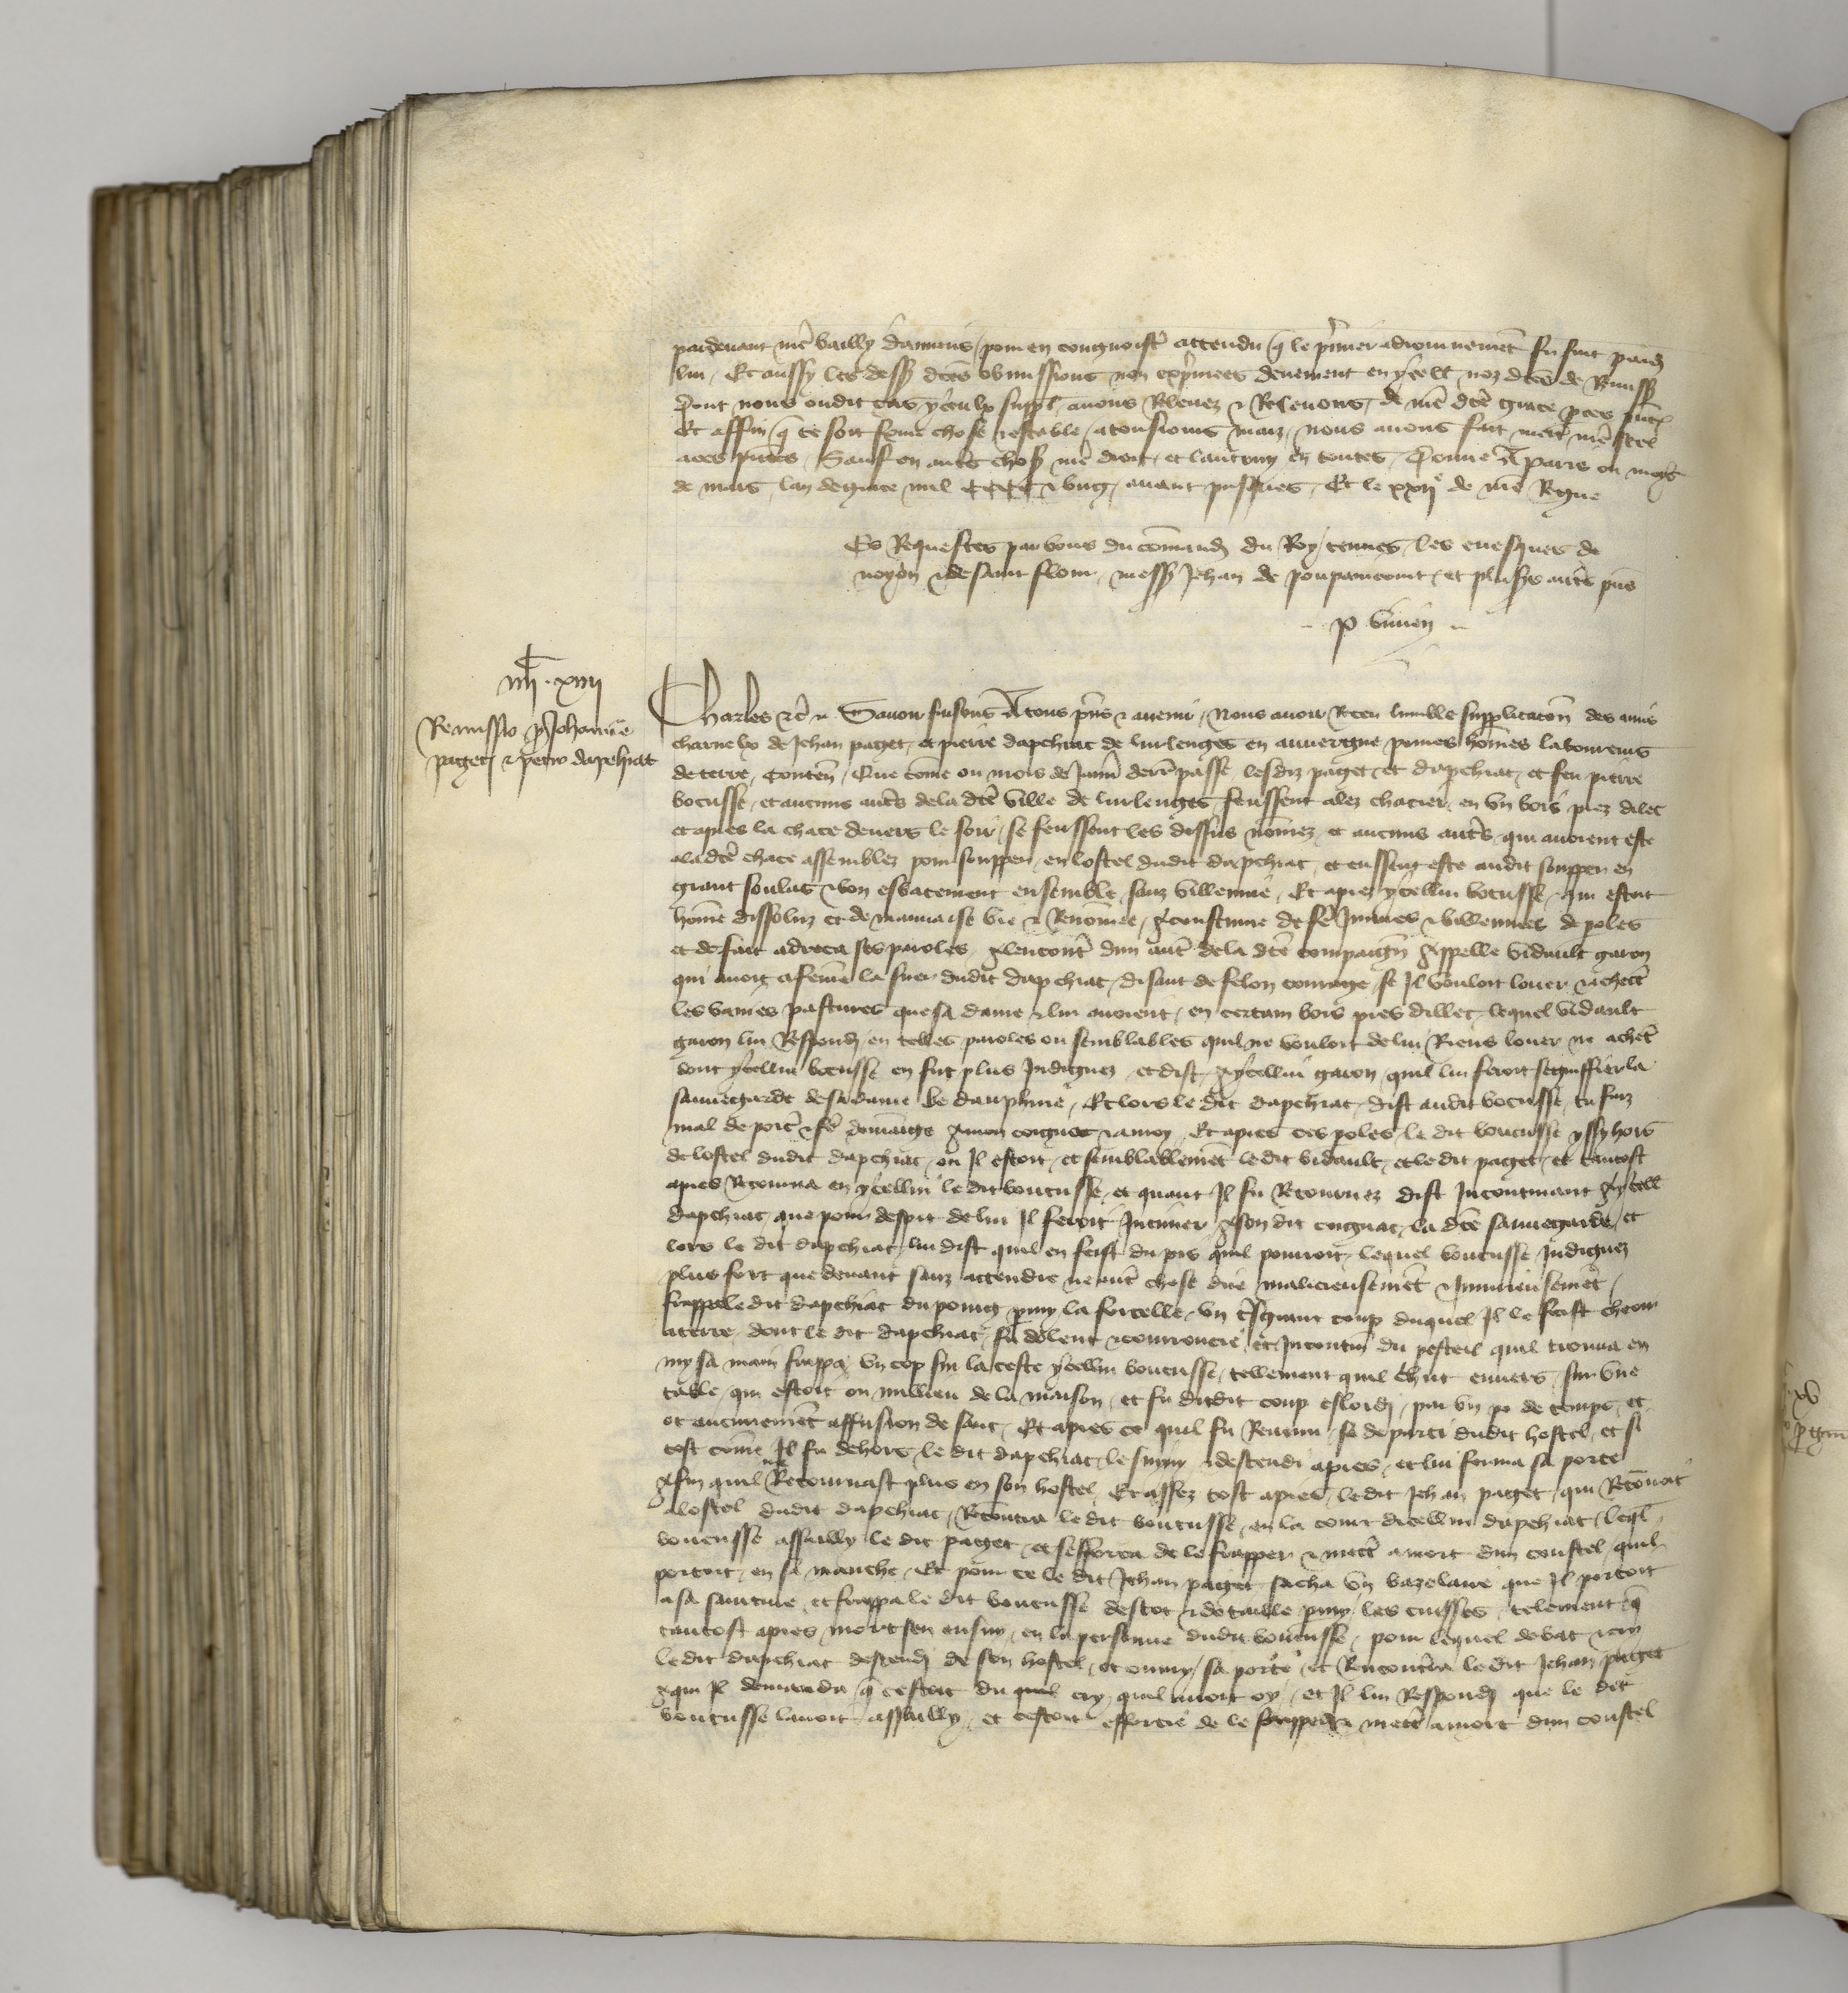 pardevant nre bailly damiens pour en congnoistre attendu q le prmier adiournement fu fait pardev
lui / Et aussy les dess dctes obmissions non exprimees deuement en ycell noz dctes de Remiss
Dont nous oudit cas yceulx suppl avons Relevez & Relevons de nre dcte grace p ces pntes
Et affin q ce soit ferme chose & estable atousiours maiz nous avons fait mett nre scel
aces pntes Sauf en autrs chos nre droit et lautruy en toutes / Donne A paris ou mois
de mars lan de grace mil CCCC & ung avant pasques Et le xxije de nre Regne
Es Requestes par vous du comand du Roy tenues les evesques de
noyon & de saint flour mess Jehan de poupaincourt et plus autrs pns
p vivien
iiijc . xiiij
Remissio p Johanne
paget & petro dapchiat
Charles &c Savoir faisons A tous pns & avenir Nous avoir Receu humble supplicacon des amis
charnelx de Jehan paget et pierre dapchiat de lurlenges en auvergne povres hommes laboureurs
de terre conten Que come ou mois de Juing derr passe lesdiz paget et dapchiat et feu pierre
bocusse et aucuns autrs dela dcte ville de lurlenges feussent alez chacier en un bois prez dilec
et apres la chace devers le soir se feussent les dessus nomez et aucuns autrs qui avoient este
aladcte chace assemblez pour soupper en lostel dudit dapchiat et eussent este audit soupper en
grant soulas & bon esbatement ensemble sanz villennie Et apres ycellui bocusse qui estoit
home dissoluz et de mauvaise vie & Renommee acoustume de fe Iniures & villennies de poles
et de fait adreca ses paroles alencontr dun autr dela dcte compaign Appelle vidault garon
qui avoit a femme la suer dudit dapchiat disant de felon courage se Il vouloit louer & achetr
les vaines pastures que sa dame & lui avoient en certain bois pres dillec lequel vidault
garon lui Respondi en telles paroles ou semblables quil ne vouloit de lui Riens louer ne achetr
dont ycellui bocusse en fut plus Indignez et dist aycellui garon quil lui feroit segniffier la
sauvegarde de sa dame be dauphine Et lors le dit dapchiat dist audit bocusse tu faiz
mal de portr & fe domaige amon coignat & amoy Et apres ces poles le dit boucusse yssy hors
de lostel dudit dapchiat ou Il estoit et semblablement ledit vidault et le dit paget et tantost
apres Retourna en ycellui le dit boucusse et quant Il fu Retournez dist Incontinant aycell
dapchiat que pour despit de lui Il feroit Intimer ason dit coignat la dcte sauvegarde et
lors le dit dapchiat lui dist quil en feist du pis quil pourroit lequel boucusse Indignez
plus fort que devant sanz attendre ne autr chose dire malicieusement & Iniurieusement
frappa le dit dapchiat du poing pmy la forcelle un tsgrant coup duquel Il le feist cheoir
aterre dont le dit dapchiat fu dolent & courroucie et Incontin du pesteil quil trouva en
my sa main frappa un cop sur la teste ycellui boucusse tellement quil chut envers sur une
table qui estoit ou millieu de la maison et fu dudit coup eslordi par un po de temps et
ot aucunement affusion de sanc Et apres ce quil fu Revenu se departi dudit hostel et si
tost come Il fu dehors le dit dapchiat le suyvy & descendi apres et lui ferma sa porte
afin quil ne Retournast plus en son hostel Et assez tost apres ledit Jehan paget qui Retournoit
alostel dudit dapchiat Rencontra ledit boucusse en la court dicellui dapchiat leql
boucusse assailly le dit paget et sefforca de le frapper & mett amort dun coustel quil
portoit en sa manche Et pour ce le dit Jehan paget sacha un bazelaire que Il portoit
a sa sainture et frappa le dit boucusse destoc & de taille pmy les cuisses telement q
tantost apres mort sen ensuy en la personne dudit boucusse pour lequel debat & cry
ledit dapchiat descendi de son hostel et ouvry sa porte et Rencontra le dit Jehan paget
aqui Il demanda q cestoit du cry quil avoit oy et Il lui Respondi que le dit
boucusse lavoit assailly et cestoit efforcie de le frapper & mett amort dun coustel